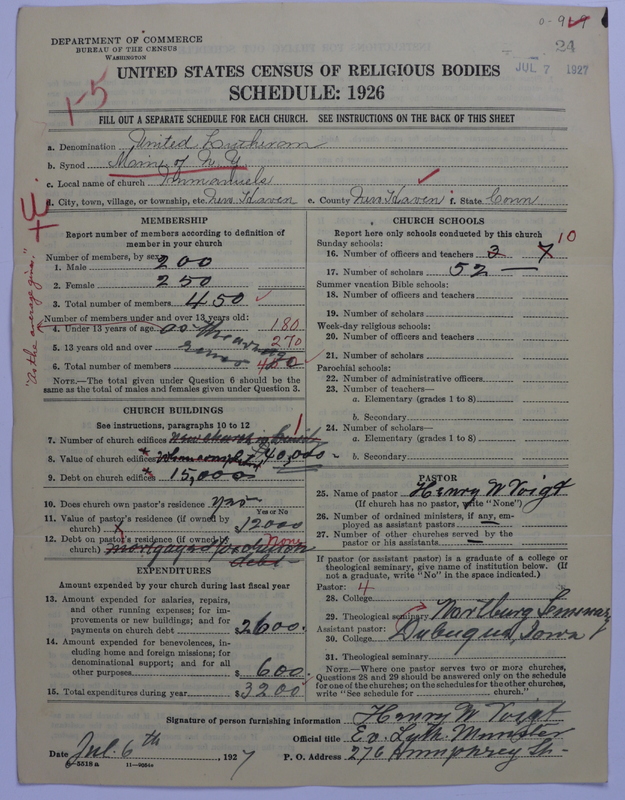 0-9
24
JUL 7 1927
DEPARTMENT OF COMMERCE
BUREAU OF THE CENSUS
WASHINGTON
UNITED STATES CENSUS OF RELIGIOUS BODIES
SCHEDULE: 1926
1-5
FILL OUT A SEPARATE SCHEDULE FOR EACH CHURCH. SEE INSTRUCTIONS ON THE BACK OF THIS SHEET
a. Denomination United Lutheran
b. Synod of N.Y
c. Local name of church Immanuels
d. City, town, village, or township, etc. New Haven e. County New Haven f. State Conn
MEMBERSHIP
Report number of members according to definition of member in your church
Number of members, by sex:
1. Male 200
2. Female 250
3. Total number of members 450
Number of members under and over 13 years old:
4. Under 13 years of age as the average 180
5. 13 years old and over 270
6. Total number of members 450
"As the average given."
NOTE.—The total given under Question 6 should be the
same as the total of males and females given under Question 3.
CHURCH BUILDINGS
See instructions, paragraphs 10 to 12
7. Number of church edifices New church 1
8. Value of church edifices When completed 40,000
9. Debt on church edifices 15,000
10. Does church own pastor's residence? yes
Yes or No
11. Value of pastor's residence (if owned by
church) 12000
12. Debt on pastor's residence (if owned by
church) None
debt
EXPENDITURES
Amount expended by your church during last fiscal year
13. Amount expended for salaries, repairs,
and other running expenses; for im-
provements or new buildings; and for
payments on church debt $2600.
14. Amount expended for benevolences, in-
cluding home and foreign missions; for
denominational support; and for all
other purposes $ 600.
15. Total expenditures during year $3200
CHURCH SCHOOLS
Report here only schools conducted by this church
Sunday schools:
16. Number of officers and teachers 3 7 10
17. Number of scholars 52 —
Summer vacation Bible schools:
18. Number of officers and teachers
19. Number of scholars
Week-day religious schools:
20. Number of officers and teachers
21. Number of scholars
Parochial schools:
22. Number of administrative officers
23. Number of teachers—
a. Elementary (grades 1 to 8)
b. Secondary
24. Number of scholars—
a. Elementary (grades 1 to 8)
b. Secondary
PASTOR
25. Name of pastor Henry W Voigt
(If church has no pastor, write "None")
26. Number of ordained ministers, if any, em-
ployed as assistant pastors —
27. Number of other churches served by the
pastor or his assistants —
If pastor (or assistant pastor) is a graduate of a college or
theological seminary, give name of institution below. (If
not a graduate, write "No" in the space indicated.)
Pastor: 4
28. College
29. Theological seminary Wartburg Seminary
Assistant pastor:
30. College Dubuque, Iowa
31. Theological seminary
NOTE.—Where one pastor serves two or more churches,
Questions 28 and 29 should be answered only on the schedule
for one of the churches; on the schedules for the other churches,
write "See schedule for church."
Signature of person furnishing information Henry W Voigt
Official title Ev. Luth. Minister
Date Jul. 6th, 1927 P. O. Address 276 Humphrey St.
6-5518 a 11-9864